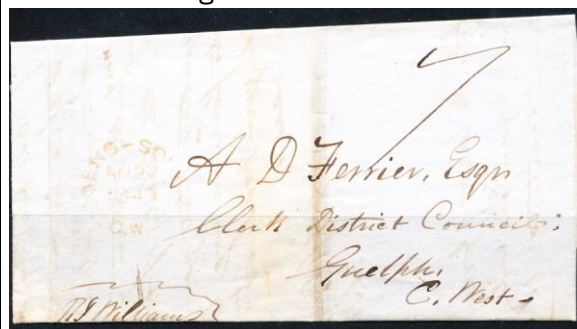 7
A D Ferrier, Esqr
Clerk District Council;
Guelph,
C. West
Williams